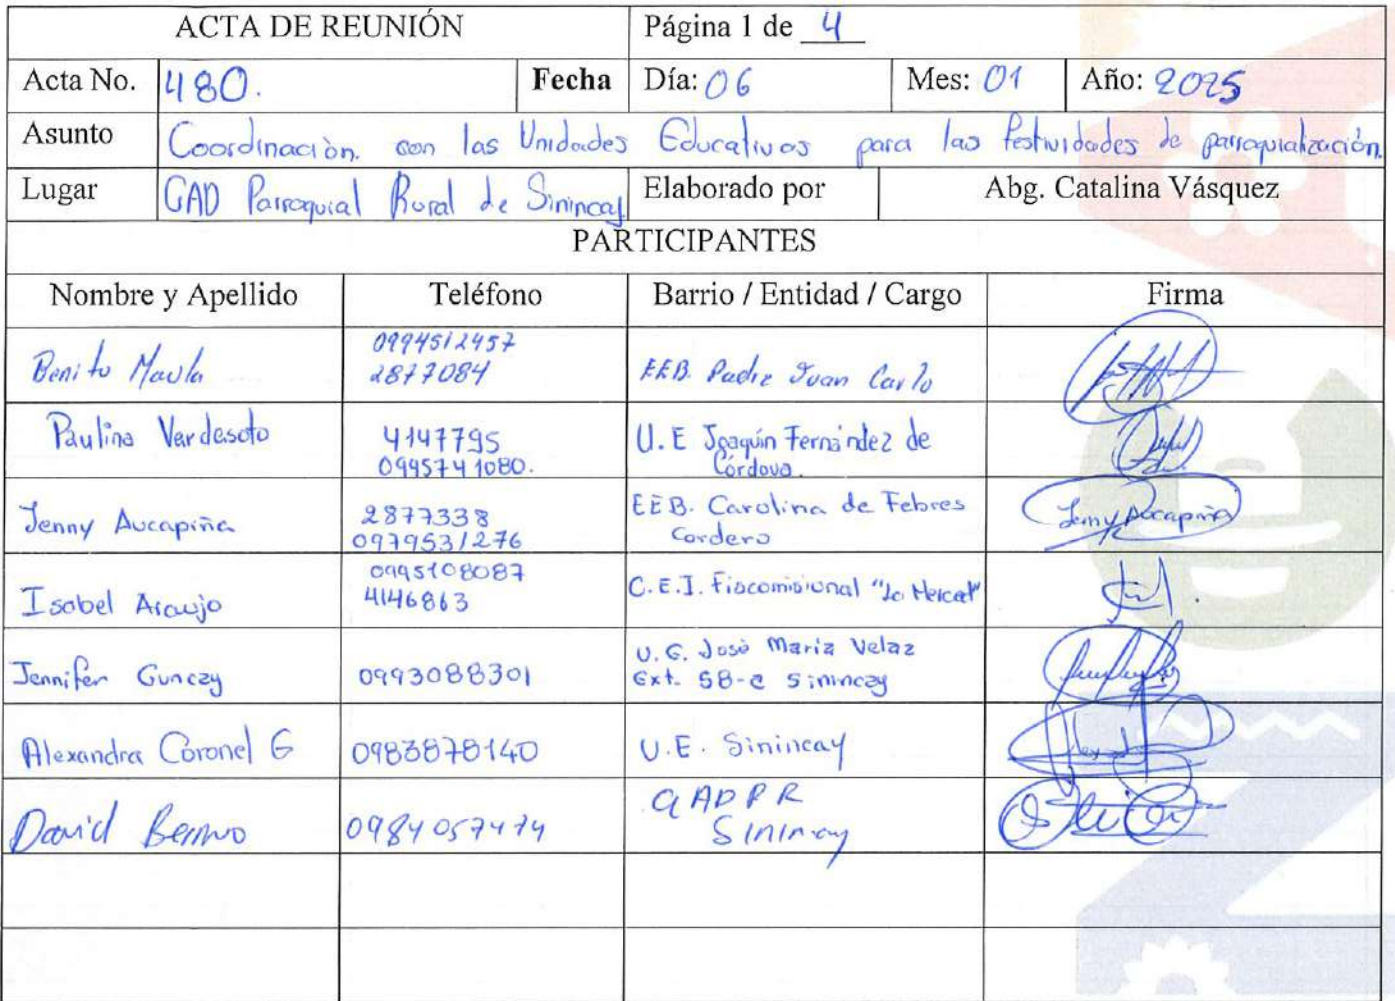 ACTA DE REUNIÓN Página 1 de 4
Acta No. 480. Fecha Día: 06 Mes: 01 Año: 2025
Asunto Coordinación. con las Unidades Educativas para las festividades de parroquialización.
Lugar GAD Parroquial Rural de Sinincay Elaborado por Abg. Catalina Vásquez
PARTICIPANTES
Nombre y Apellido Teléfono Barrio / Entidad / Cargo Firma
Benito Maula 0994512457
2877084 EEB. Padre Juan Carlo
Paulina Verdesoto 4147795
0995741080. U.E Joaquín Fernández de
Córdova.
Jenny Aucapiña 2877338
0979531276 EEB. Carolina de Febres
Cordero Jenny Aucapiña
Isabel Araujo 0995108087
4146863 C.E.I. Fiscomisional "La Merced"
Jennifer Guncay 0993088301 U.E. José María Velaz
Ext. 58-C Sinincay
Alexandra Coronel G 0983878140 U.E. Sinincay
David 0984057474 GADPR
Sinincay